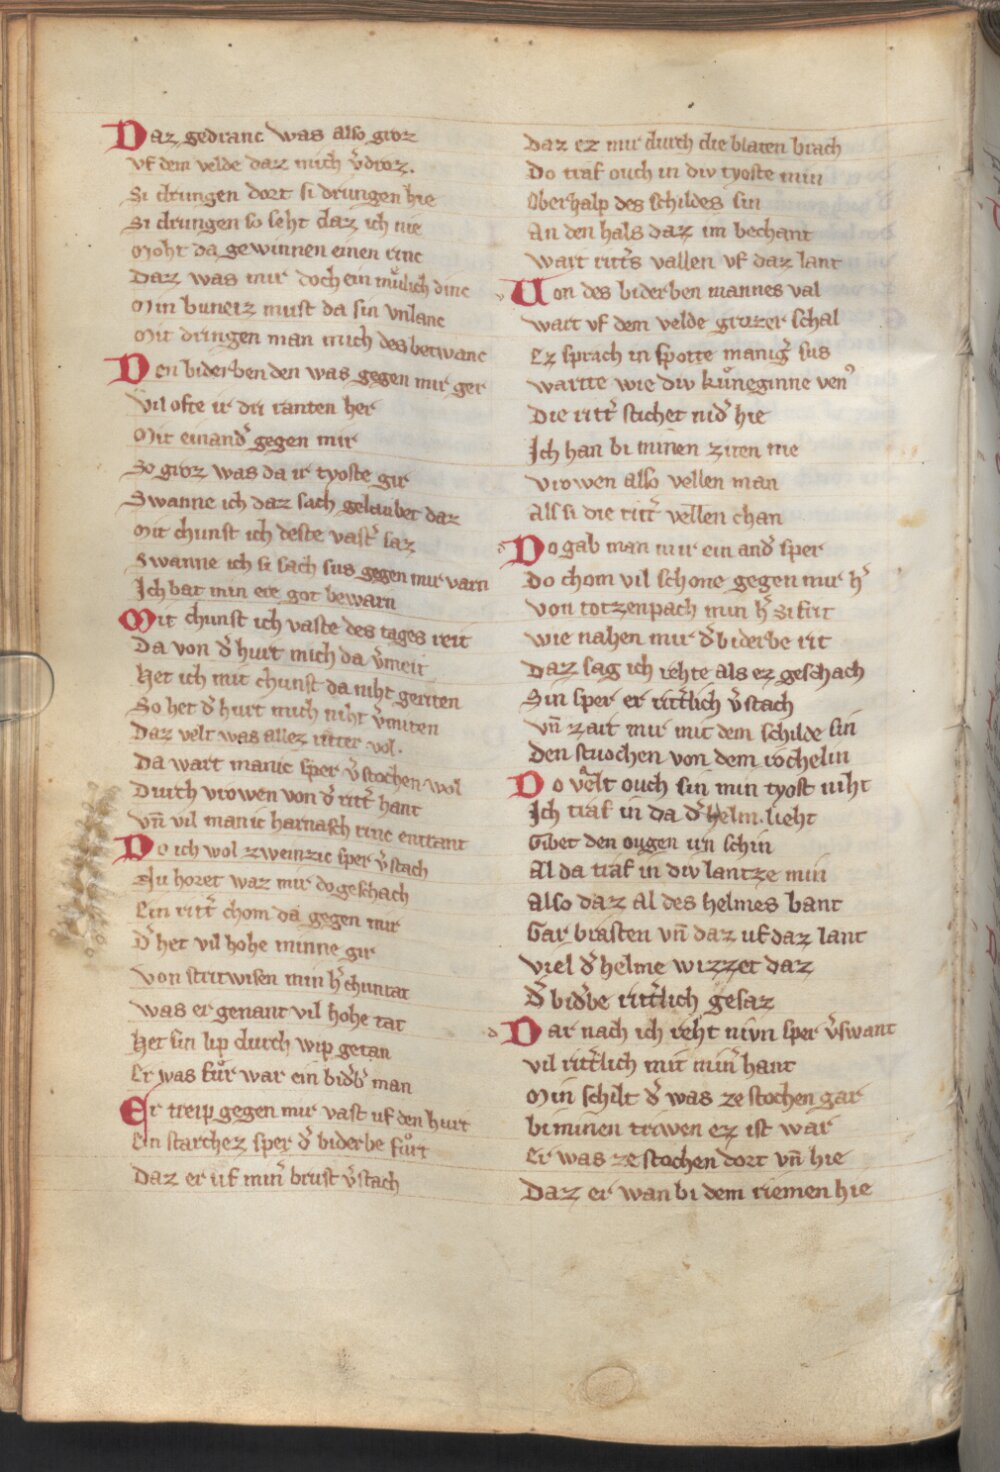 Daz gedranc was also groz
vf dem velde daz mich v̄droz.
Si drungen dort si drungen hie
Si drungen so seht daz ich nie
Moht da gewinnen einen rinc
Daz was mir doch ein muͤlich dinc
Min buneiz must da sin vnlanc
Mit dringen man mich des betwanc
Den biderben den was gegen mir ger
Vil ofte ir dri ranten her
Mit einand̄ gegen mir
So groz was da ir tyoste gir
Swanne ich daz sach geloubet daz
Mit chunst ich deste vast̄ saz
Swanne ich si sach sus gegen mir varn
Ich bat min ere got bewarn
Mit chunst ich vaste des tages reit
Da von d̄ hurt mich da v̄meit
Het ich mit chunst da niht geriten
So het d̄ hurt mich niht v̄miten
Daz velt was allez ritter vol.
Da wart manic sper v̄stochen wol
Durch vrowen von d̄ ritt̄ hant
Vn̄ vil manic harnasch rinc entrant
Do ich wol zweinzic sper v̄stach
Nu horet waz mir do geschach
Ein ritt̄ chom da gegen mir
D̄ het vil hohe minne gir
Von stritwisen min h̄ chunrat
Was er genant vil hohe tat
Het sin lip durch wip getan
Er was fuͤr war ein bid̄b̄ man
Er treip gegen mir vast uf den hurt
Ein starchez sper d̄ biderbe fuͦrt
Daz er uf min̄ brust v̄stach
Daz ez mir durch die blaten brach
Do traf ouch in div tyoste min
Oberhalp des schildes sin
An den hals daz im bechant
Wart ritt̄s vallen vf daz lant
Von des biderben mannes val
Wart vf dem velde grozer schal
Ez sprach in spotte maniḡ sus
Wartte wie div kuͤneginne ven᾽
Die ritt̄ stichet nid̄ hie
Ich han bi minen ziten nie
Vrowen also vellen man
Als si die ritt̄ vellen chan
Do gab man mir ein and̄ sper
Do chom vil schone gegen mir h̄
Von totzenpach min h̄ Sifrit
Wie nahen mir d̄ biderbe rit
Daz sag ich rehte als ez geschach
Sin sper er ritt̄lich v̄stach
Vn̄ zart mir mit dem schilde sin
Den stuochen von dem rochelin
Do vaͤlt ouch sin min tyost niht
Ich traf in da d̄ helm lieht
Gibet den ougen un schin
Al da traf in div lantze min
Also daz al des helmes bant
Gar brasten vn̄ daz uf daz lant
Viel d̄ helme wizzet daz
D̄ bid̄be ritt̄lich gesaz
Dar nach ich reht nivn sper v̄swant
Vil ritt̄lich mit min̄ hant
Min schilt d̄ was ze stochen gar
bi minen triwen ez ist war
Er was ze stochen dort vn̄ hie
Daz er wan bi dem riemen hie